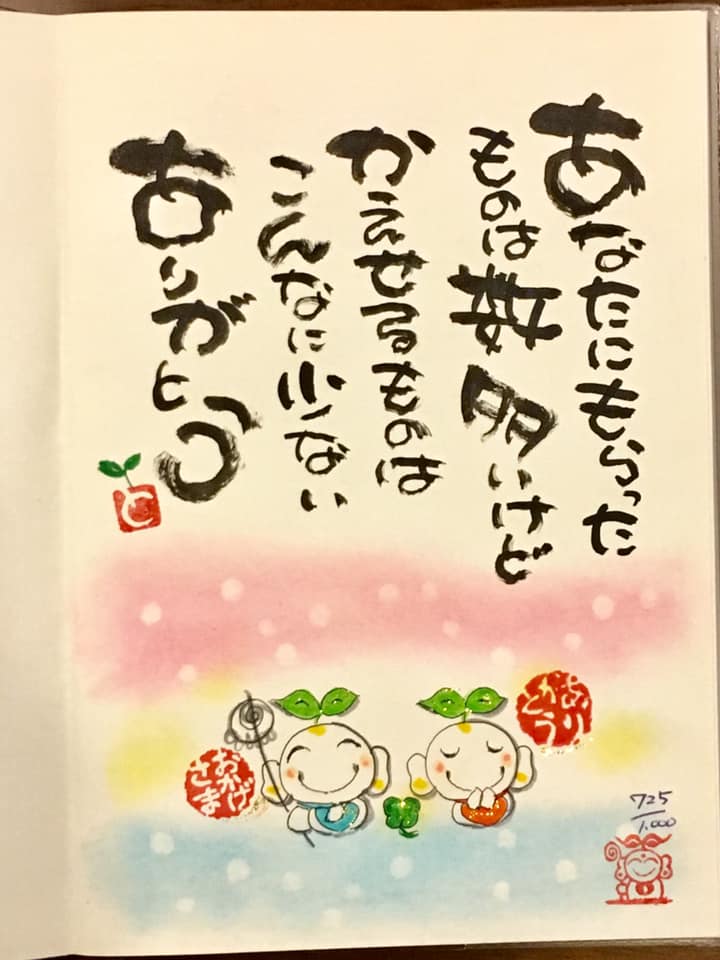 あなたにもらった
ものは数多いけど
かえせるものは
こんなに少ない
ありがとう
と
ありがとう
おかげさま
725
1.000